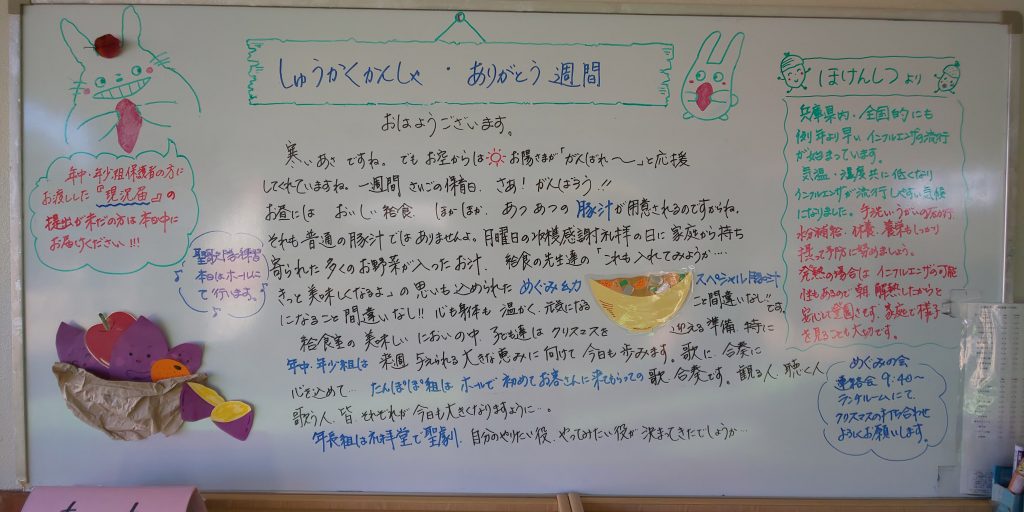 しゅうかくかんしゃ・ありがとう週間
おはようございます。
寒いあさですね。でもお空からはお陽さまが「がんばれ〜」と応援
してくれていますね。一週間さいごの保育日、さあ!がんばろう!!
お昼にはおいしい給食、ほかほか、あつあつの豚汁が用意されるのですからね。
それも普通の豚汁ではありませんよ。月曜日の収穫感謝礼拝の日に家庭から持ち
寄られた多くのお野菜が入ったお汁、給食の先生達の「これも入れてみようか…
きっと美味しくなるよ」の思いも込められためぐみ幼 スペシャル豚汁です。
になること間違いなし!!心も身体も温かく、元気になること間違いなし!!
給食室の美味しいにおいの中、子ども達はクリスマスを迎える準備、特に
年中・年少組は来週与えられる大きな恵みに向けて今日も歩みます。歌に、合奏に
心を込めて…たんぽぽ組はホールで初めてお客さんに来てもらっての歌、合奏です。観る人、聴く人
歌う人、皆、それぞれが今日も大きくなりますように…。
年長組は礼拝堂で聖劇、自分のやりたい役、やってみたい役が決まってきたでしょうか…
年中・年少組保護者の方に
お渡しした『現況届』の
提出が未だの方は本日中に
お届けください!!!
聖歌隊の練習
本日はホールに
て行います。
ほけんしつより
兵庫県内・全国的にも
例年より早いインフルエンザの流行
が始まっています。
気温・湿度共に低くなり
インフルエンザが流行しやすい気候
になりました。手洗い・うがいの励行、
水分補給、休養、栄養もしっかり
摂って予防に努めましょう。
発熱の場合はインフルエンザの可能
性もあるので朝、解熱したからと
安心は登園させず、家庭で様子
を見ることも大切です。
めぐみの会
連絡会 9:40〜
ランチルームにて
クリスマスの打ち合わせ
よろしくお願いします。